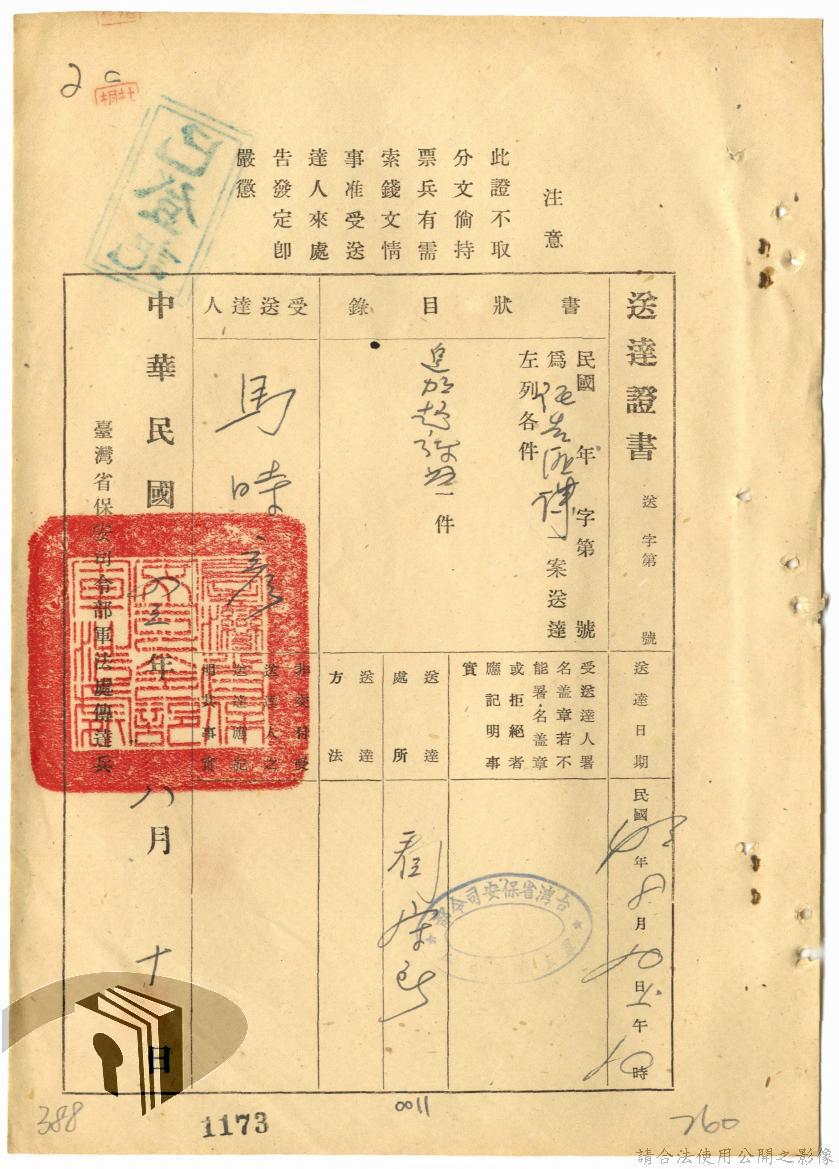 注意
此證不取
分文倘持
票兵有需
索錢文情
事准受送
達人來處
告發定卽
嚴懲
送達證書
送 字第 號
書狀目錄
民國 年 字第 號
爲 一案送達
左列各件
追加起訴書一件
受送達人
馬時彥
送達日期
民國45年8月10日上午10時
受送達人署
名盖章若不
能署名盖章
或拒絕者
應記明事
實
送達
處所
看守所
送達
方法
非交付受
送達人之
送達應記
明其事實
中華民國四五年八月十日
臺灣省保安司令部軍法處傳達兵
台灣省保安司令部
388
1173
0011
260
請合法使用公開之影像